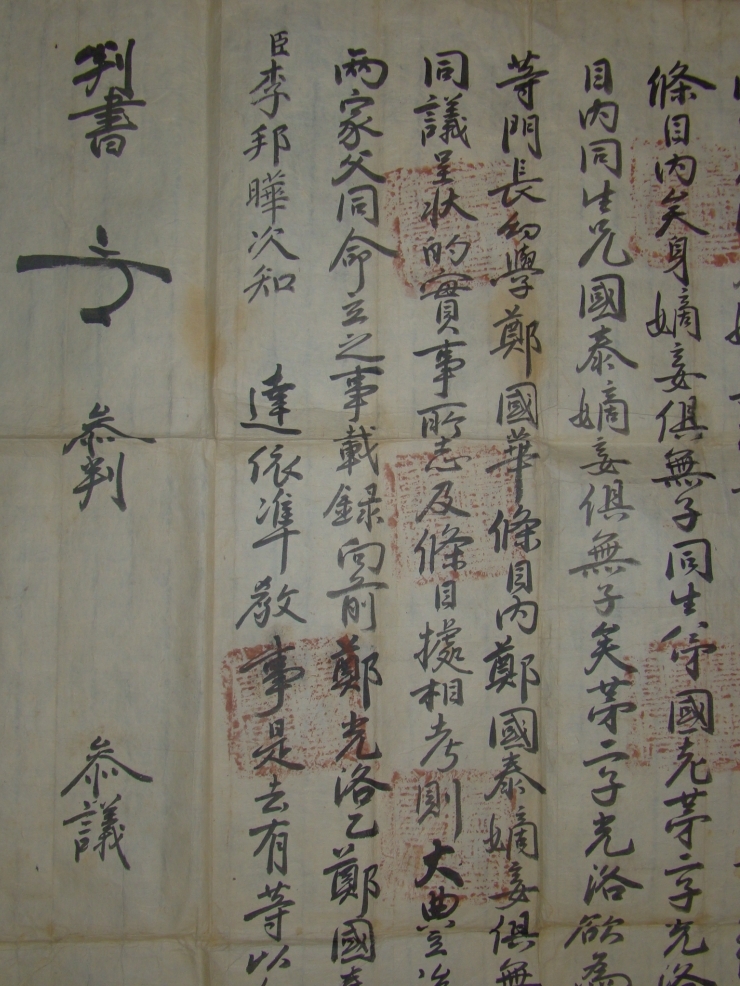 條目內矣身嫡妾俱無子同生弟國克第二子光洛
目內同生兄國泰嫡妾俱無子矣第二子光洛欲為
等門長幼學鄭國華條目內鄭國泰嫡妾俱無
同議呈狀的實事所志及條目據相考則大典立
兩家父同命立之事載錄向前鄭光洛乙鄭國泰
臣李邦曄次知 達依準教事是去有等以
判書
參判
參議